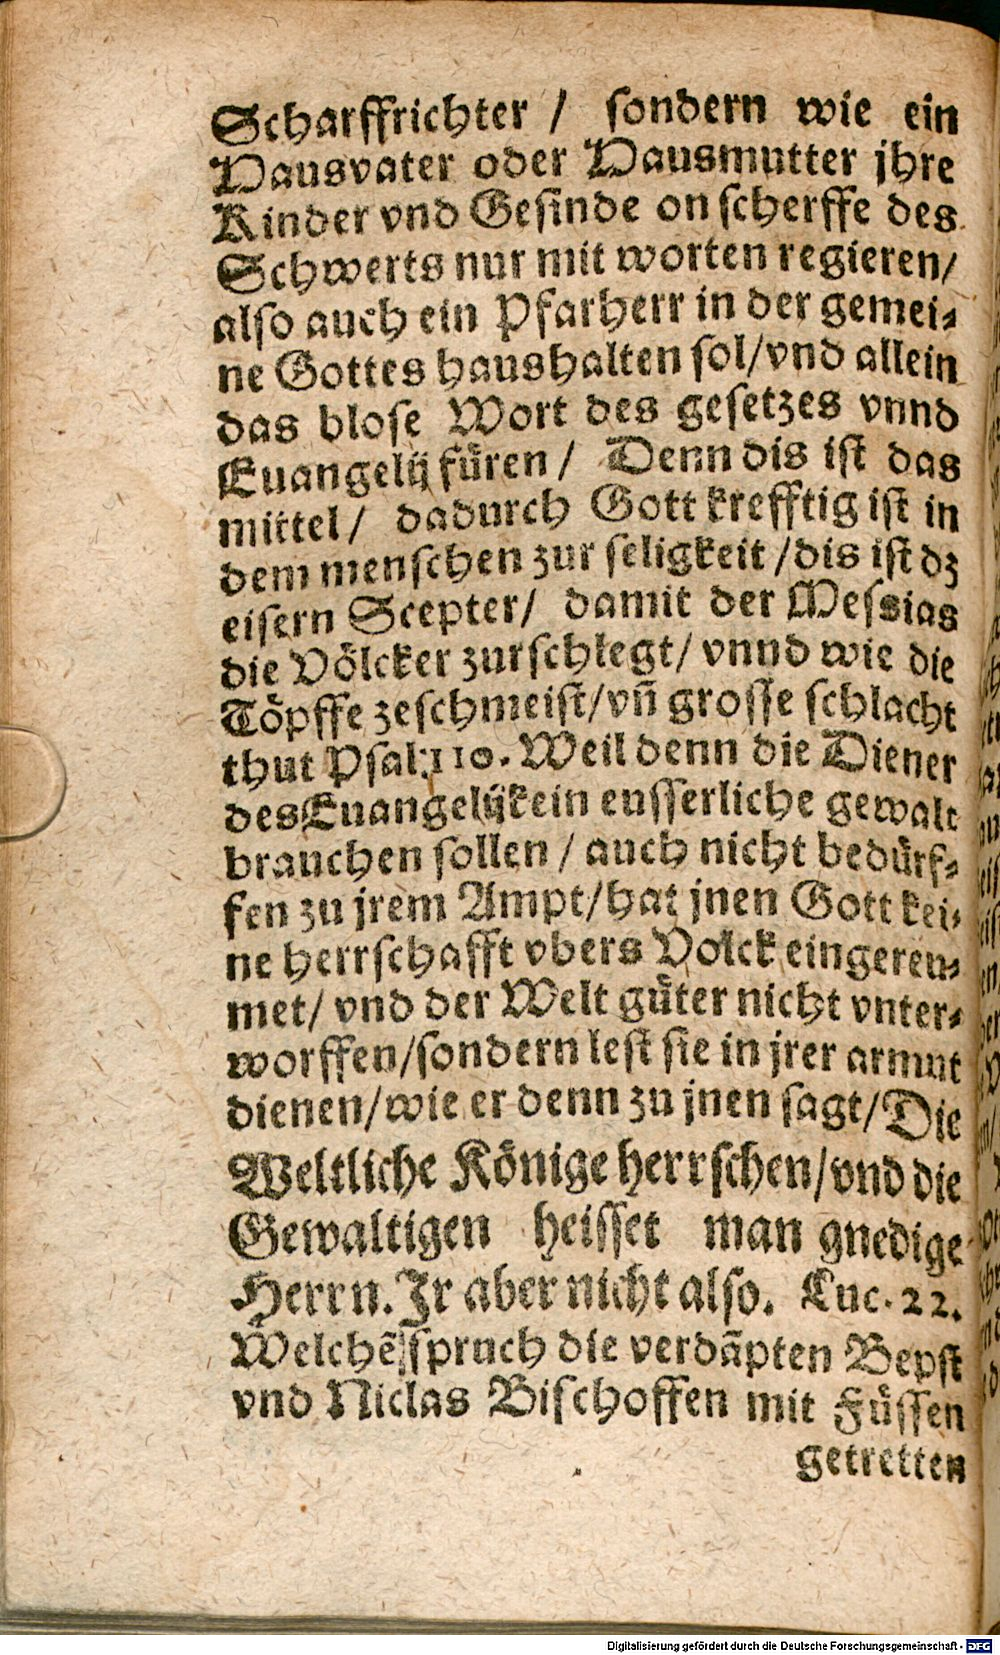 Scharffrichter / sondern wie ein
Hausvater oder Hausmutter jhre
Kinder vnd Gesinde on scherffe des
Schwerts nur mit worten regieren/
also auch ein Pfarherr in der gemei-
ne Gottes haushalten sol/vnd allein
das blose Wort des gesetzes vnnd
Euangelij füren / Denn dis ist das
mittel/ dadurch Gott krefftig ist in
dem menschen zur seligkeit /dis ist dz
eisern Scepter/ damit der Messias
die Völcker zurschlegt/ vnnd wie die
Töpffe zeschmeist/vñ grosse schlacht
thut Psal:110. Weil denn die Diener
des Euangelij kein eusserliche gewalt
brauchen sollen / auch nicht bedürf-
fen zu jrem Ampt/hat jnen Gott kei-
ne herrschafft vbers Volck eingereu-
met/ vnd der Welt güter nicht vnter-
worffen/sondern lest sie in jrer armut
dienen/wie er denn zu jnen sagt/Die
Weltliche Könige herrschen/vnd die
Gewaltigen heisset man gnedige
Herrn. Jr aber nicht also. Luc. 22.
Welchẽ spruch die verdãpten Bepst
vnd Niclas Bischoffen mit Füssen
getretten
Digitalisierung gefördert durch die Deutsche Forschungsgemeinschaft - DFG